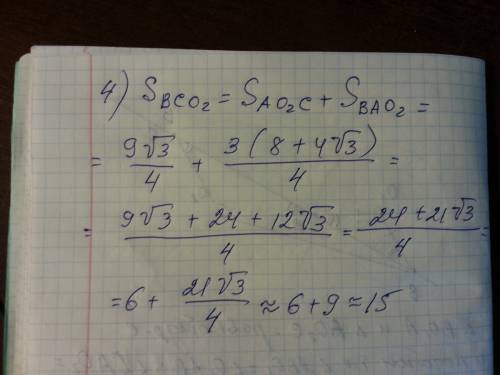 4) S_BCO₂ = S_AO₂C + S_BAO₂ =
= 9√3/4 + 3(8+4√3)/4 =
= 9√3 + 24 + 12√3/4 = 24+21√3/4 =
= 6 + 21√3/4 ≈ 6+9 ≈ 15